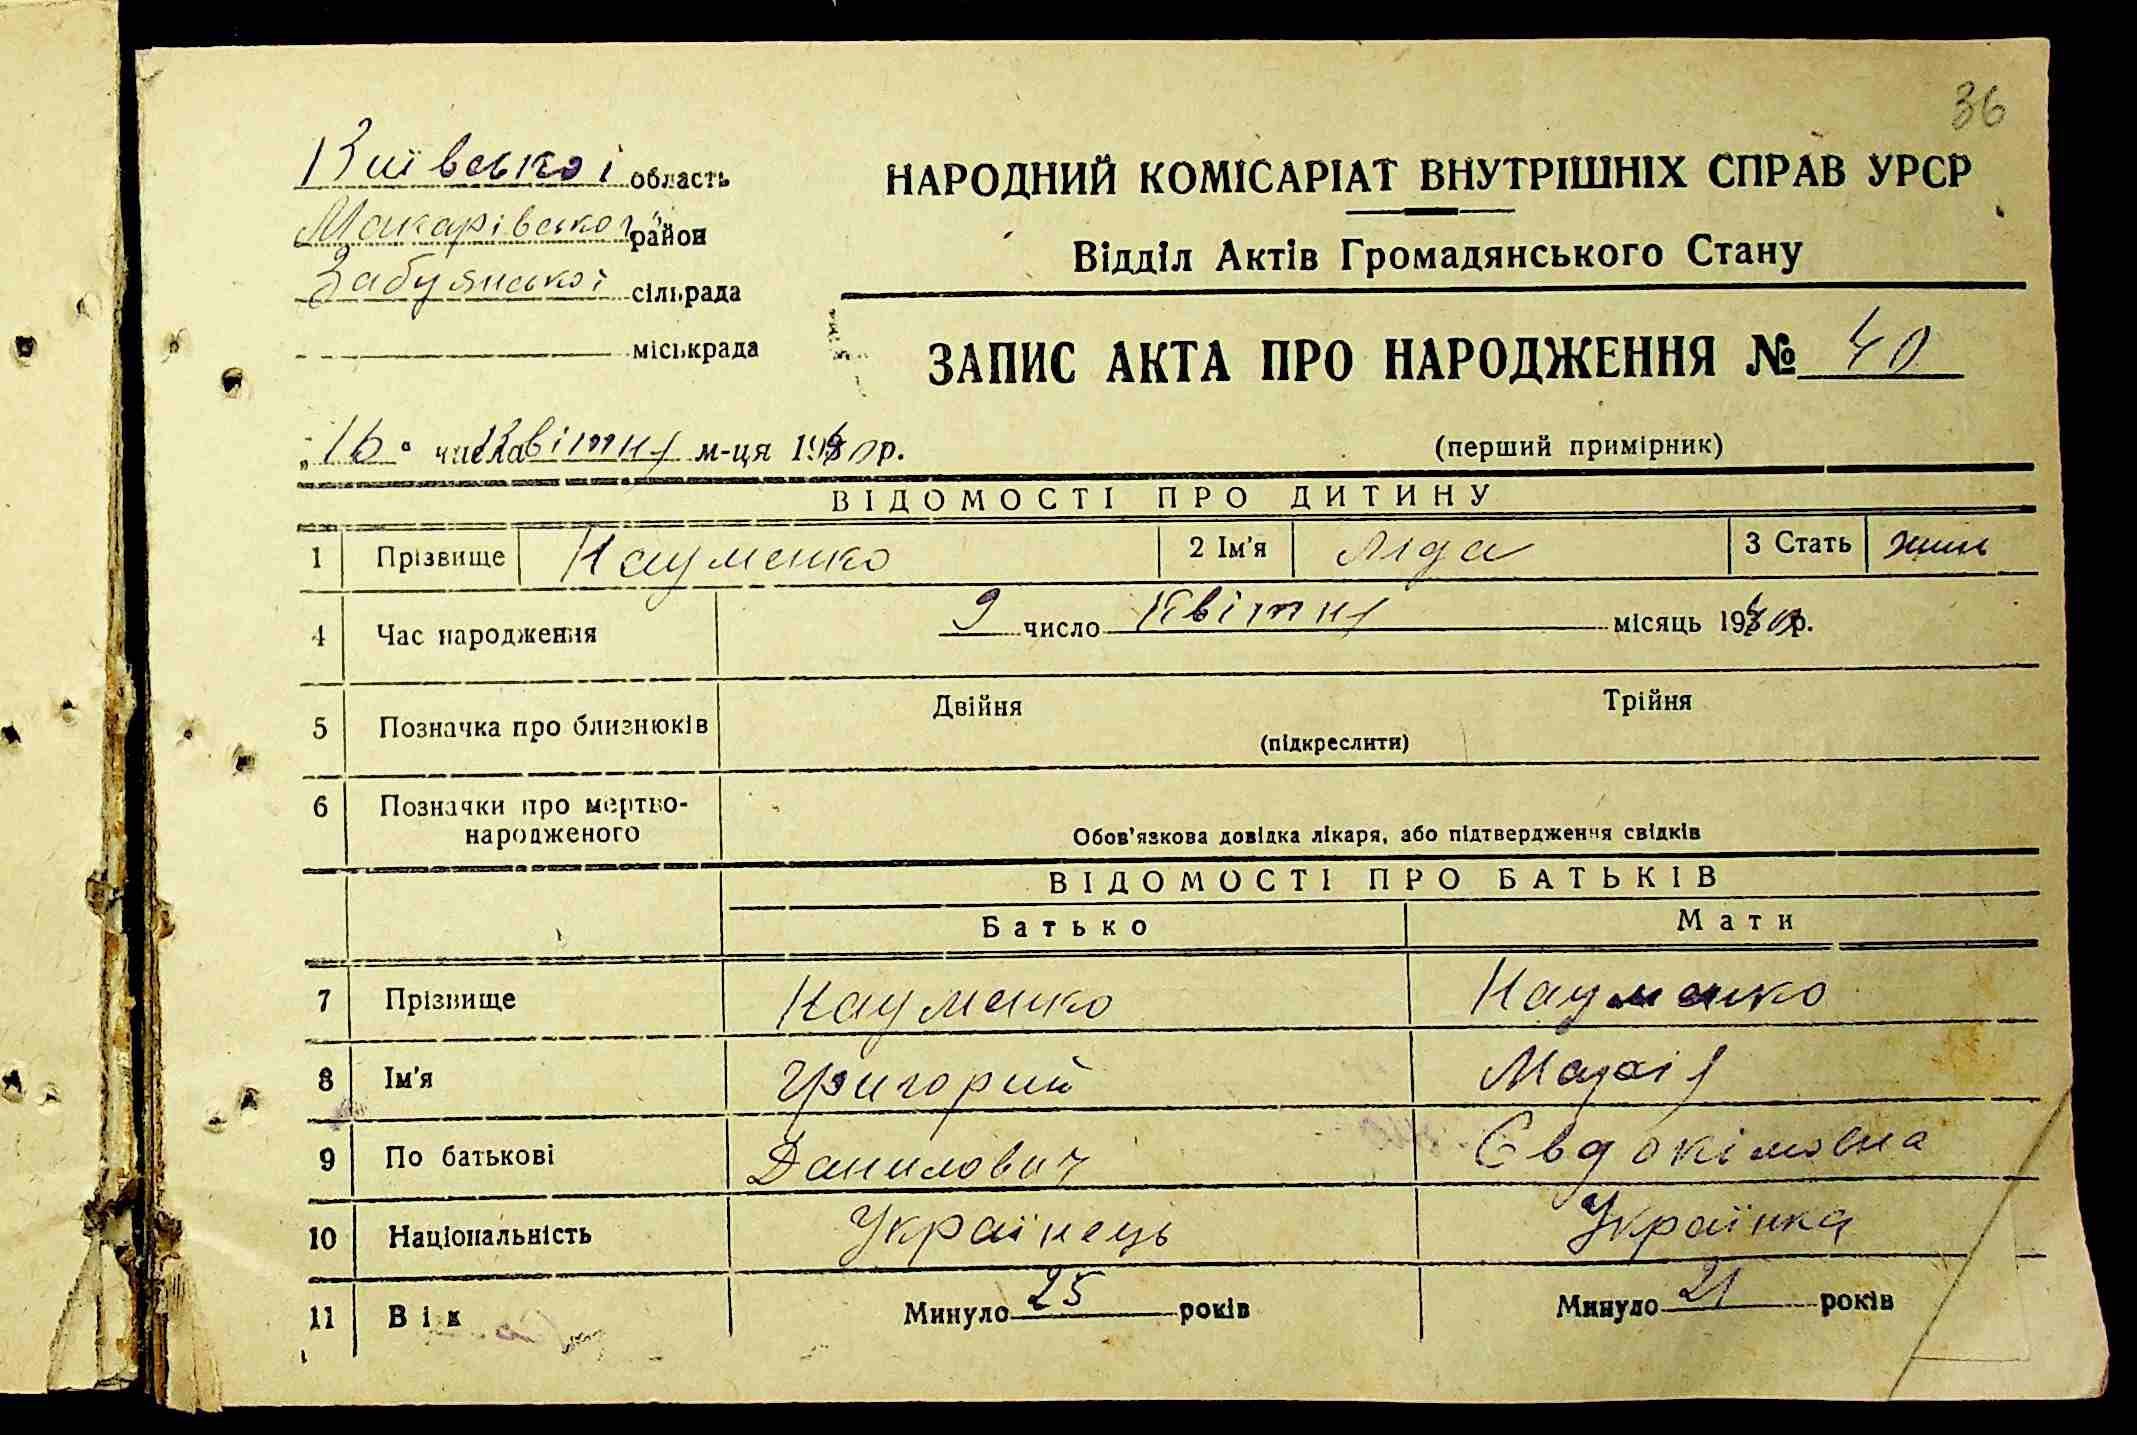 36
Київської область
Макарівської район
Забуянської сільрада
міськрада
НАРОДНИЙ КОМІСАРІАТ ВНУТРІШНІХ СПРАВ УРСР
Відділ Актів Громадянського Стану
ЗАПИС АКТА ПРО НАРОДЖЕННЯ № 40
„16“ числа Квітня м-ця 1940 р.
(перший примірник)
ВІДОМОСТІ ПРО ДИТИНУ
1 Прізвище Науменко 2 Ім'я Ліда 3 Стать жін
4 Час народження 9 число Квітня місяць 1940 р.
5 Позначка про близнюків Двійня Трійня
(підкреслити)
6 Позначки про мертво-
народженого Обов'язкова довідка лікаря, або підтвердження свідків
ВІДОМОСТІ ПРО БАТЬКІВ
Батько Мати
7 Прізвище Науменко Науменко
8 Ім'я Григорий Марія
9 По батькові Данилович Євдокімовна
10 Національність Українець Українка
11 Вік Минуло 25 років Минуло 21 років